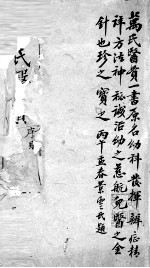 萬氏醫貫一書原名幼科發揮辨症精
祥方法神秘誠治幼之慈航兒醫之金
針也珍之寶之 丙午孟春葉雲氏題
氏